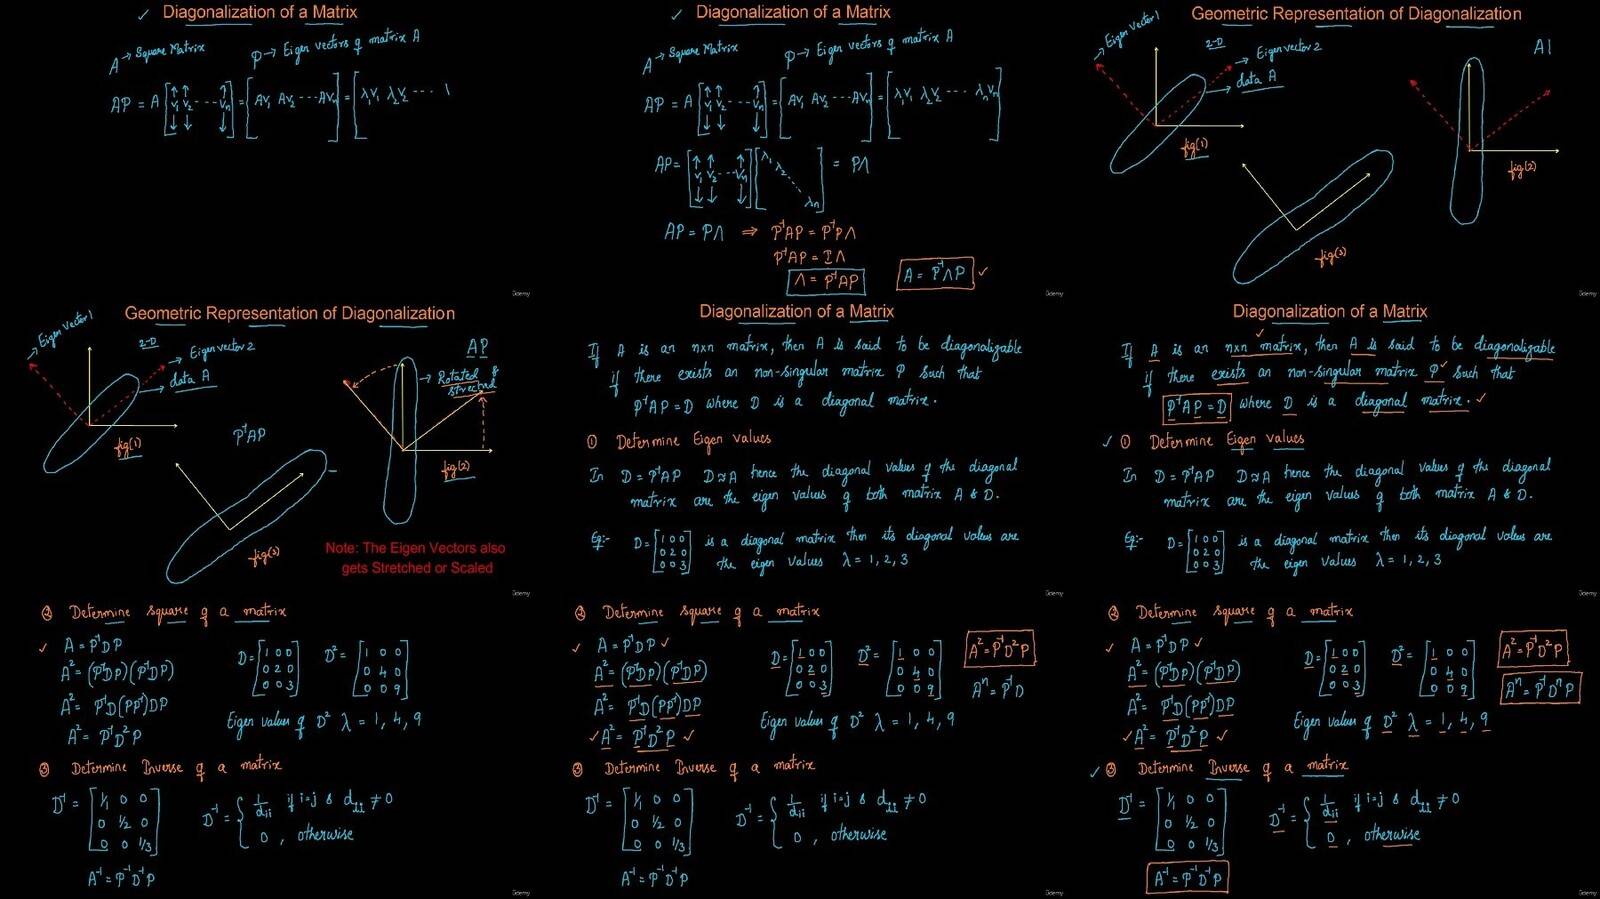 Diagonalization of a Matrix
A → Square Matrix P → Eigen vectors of matrix A
AP = A [v₁ v₂ ... vₙ] = [Av₁ Av₂ ... Avₙ] = [λ₁v₁ λ₂v₂ ...
Udemy
Diagonalization of a Matrix
A → Square Matrix P → Eigen vectors of matrix A
AP = A [v₁ v₂ ... vₙ] = [Av₁ Av₂ ... Avₙ] = [λ₁v₁ λ₂v₂ ... λₙvₙ]
AP = [v₁ v₂ ... vₙ] [λ₁ λ₂ ... λₙ] = PΛ
AP = PΛ ⇒ P⁻¹AP = P⁻¹PΛ
P⁻¹AP = IΛ
Λ = P⁻¹AP A = P⁻¹ΛP ✓
Udemy
Geometric Representation of Diagonalization
Eigen Vector 1
2-D
Eigen vector 2
data A
A1
fig(1)
fig(2)
fig(3)
Udemy
Geometric Representation of Diagonalization
Eigen Vector 1
2-D
Eigen vector 2
data A
AP
Rotated &
streched
fig(1)
P⁻¹AP
fig(2)
fig(3)
Note: The Eigen Vectors also
gets Stretched or Scaled
Udemy
Diagonalization of a Matrix
If A is an n×n matrix, then A is said to be diagonalizable
if there exists an non-singular matrix P such that
P⁻¹AP = D where D is a diagonal matrix.
① Determine Eigen values
In D = P⁻¹AP D≈A hence the diagonal values of the diagonal
matrix are the eigen values of both matrix A & D.
Eg:- D = [1 0 0 is a diagonal matrix then its diagonal values are
0 2 0
0 0 3] the eigen values λ = 1, 2, 3
Udemy
Diagonalization of a Matrix
If A is an n×n matrix, then A is said to be diagonalizable
if there exists an non-singular matrix P such that
P⁻¹AP = D where D is a diagonal matrix. ✓
✓ ① Determine Eigen values
In D = P⁻¹AP D≈A hence the diagonal values of the diagonal
matrix are the eigen values of both matrix A & D.
Eg:- D = [1 0 0 is a diagonal matrix then its diagonal values are
0 2 0
0 0 3] the eigen values λ = 1, 2, 3
Udemy
② Determine square of a matrix
✓ A = P⁻¹DP
A² = (P⁻¹DP)(P⁻¹DP)
A² = P⁻¹D(PP⁻¹)DP
A² = P⁻¹D²P
D = [1 0 0
0 2 0
0 0 3]
D² = [1 0 0
0 4 0
0 0 9]
Eigen values of D² λ = 1, 4, 9
③ Determine Inverse of a matrix
D⁻¹ = [1/1 0 0
0 1/2 0
0 0 1/3]
D⁻¹ = { 1/dᵢᵢ if i=j & dᵢᵢ ≠ 0
0 , otherwise
A⁻¹ = P⁻¹D⁻¹P
Udemy
② Determine square of a matrix
✓ A = P⁻¹DP ✓
A² = (P⁻¹DP)(P⁻¹DP)
A² = P⁻¹D(PP⁻¹)DP
✓ A² = P⁻¹D²P ✓
D = [1 0 0
0 2 0
0 0 3]
D² = [1 0 0
0 4 0
0 0 9]
A² = P⁻¹D²P
Aⁿ = P⁻¹D
Eigen values of D² λ = 1, 4, 9
③ Determine Inverse of a matrix
D⁻¹ = [1/1 0 0
0 1/2 0
0 0 1/3]
D⁻¹ = { 1/dᵢᵢ if i=j & dᵢᵢ ≠ 0
0 , otherwise
A⁻¹ = P⁻¹D⁻¹P
Udemy
② Determine square of a matrix
✓ A = P⁻¹DP ✓
A² = (P⁻¹DP)(P⁻¹DP)
A² = P⁻¹D(PP⁻¹)DP
✓ A² = P⁻¹D²P ✓
D = [1 0 0
0 2 0
0 0 3]
D² = [1 0 0
0 4 0
0 0 9]
A² = P⁻¹D²P
Aⁿ = P⁻¹DⁿP
Eigen values of D² λ = 1, 4, 9
✓ ③ Determine Inverse of a matrix
D⁻¹ = [1/1 0 0
0 1/2 0
0 0 1/3]
D⁻¹ = { 1/dᵢᵢ if i=j & dᵢᵢ ≠ 0
0 , otherwise
A⁻¹ = P⁻¹D⁻¹P
Udemy